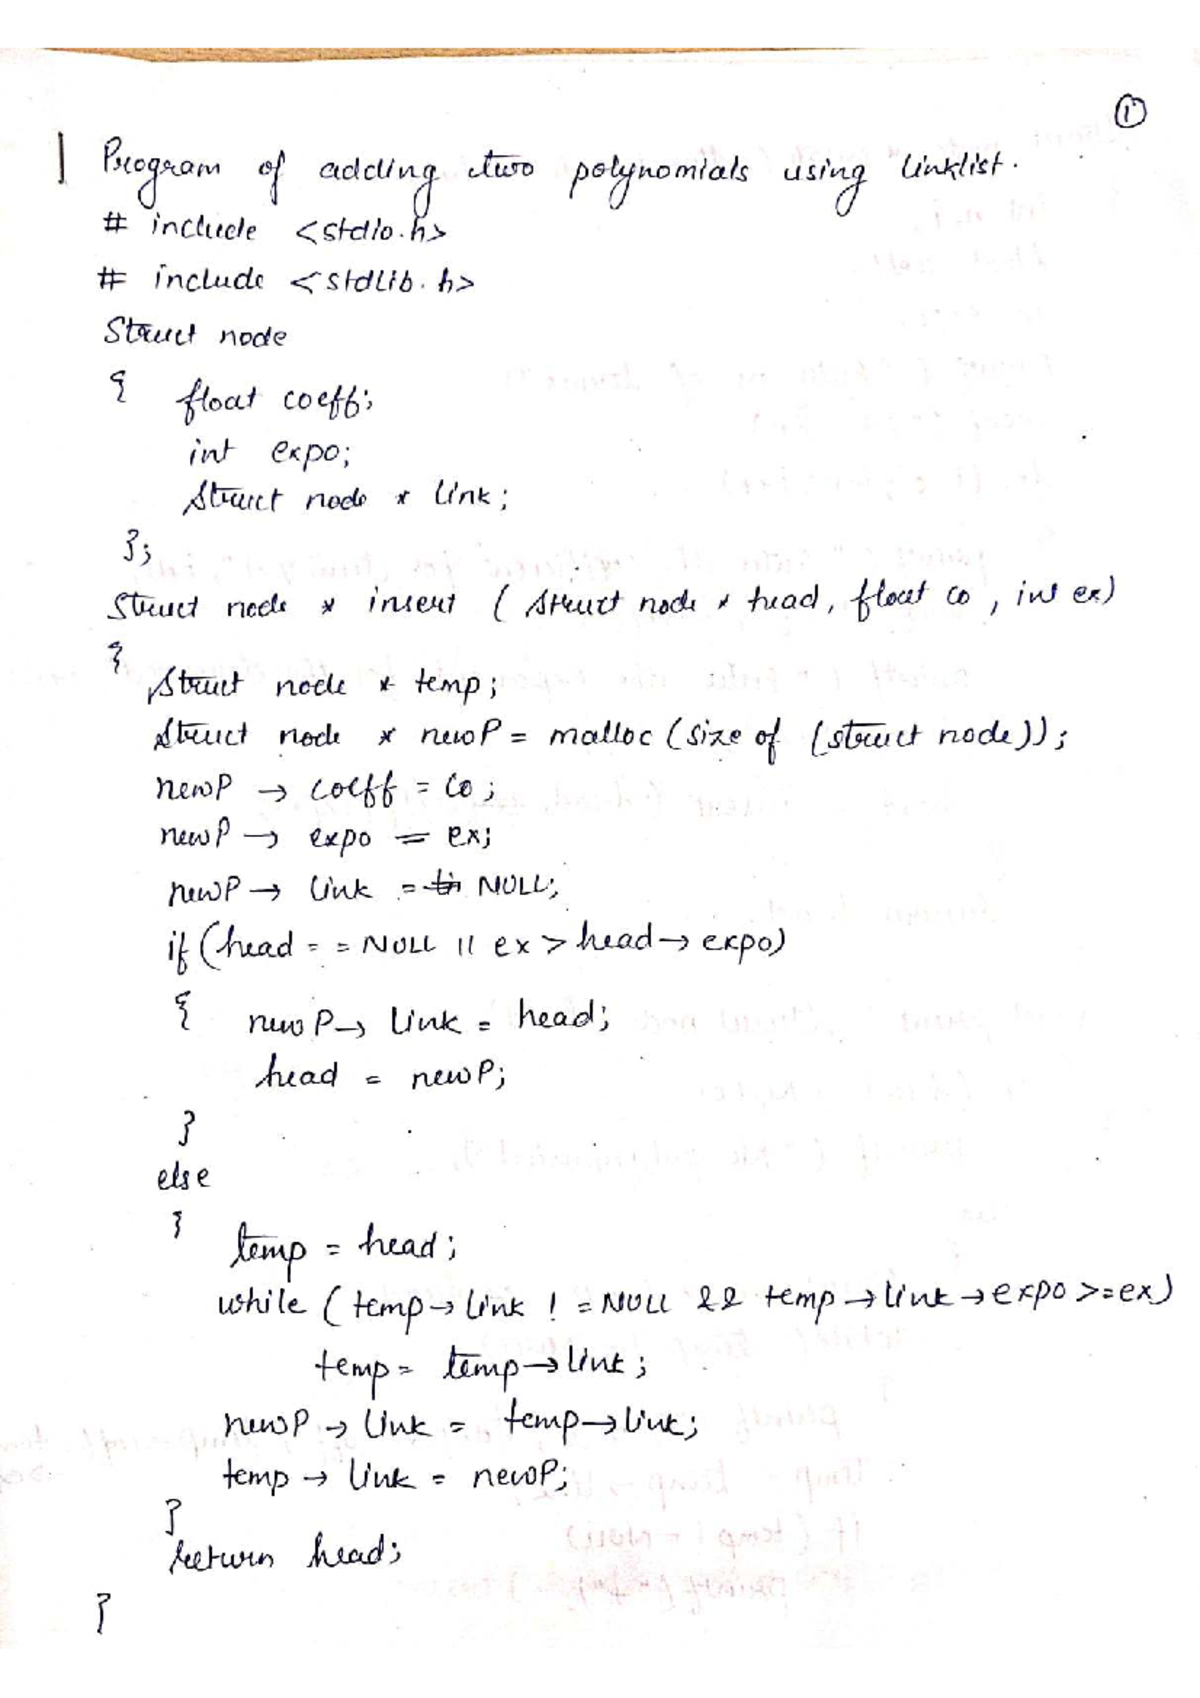 ①
Program of adding two polynomials using linklist.
# include <stdio.h>
# include <stdlib.h>
Struct node
{ float coeff;
int expo;
struct node * link;
};
Struct node * insert ( struct node * head, float co , int ex)
{
struct node * temp;
struct node * newP = malloc (size of (struct node));
newP → coeff = co;
newP → expo = ex;
newP → link = NULL;
if (head = = NULL || ex > head → expo)
{ newP → link = head;
head = newP;
}
else
{ temp = head;
while ( temp → link ! = NULL && temp → link → expo >= ex)
temp = temp → link;
newP → link = temp → link;
temp → link = newP;
}
return head;
}